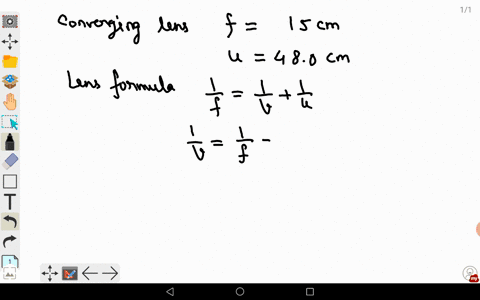 1/1
Converging lens f = 15 cm
u = 48.0 cm
Lens formula 1/f = 1/v + 1/u
1/v = 1/f -
T
1